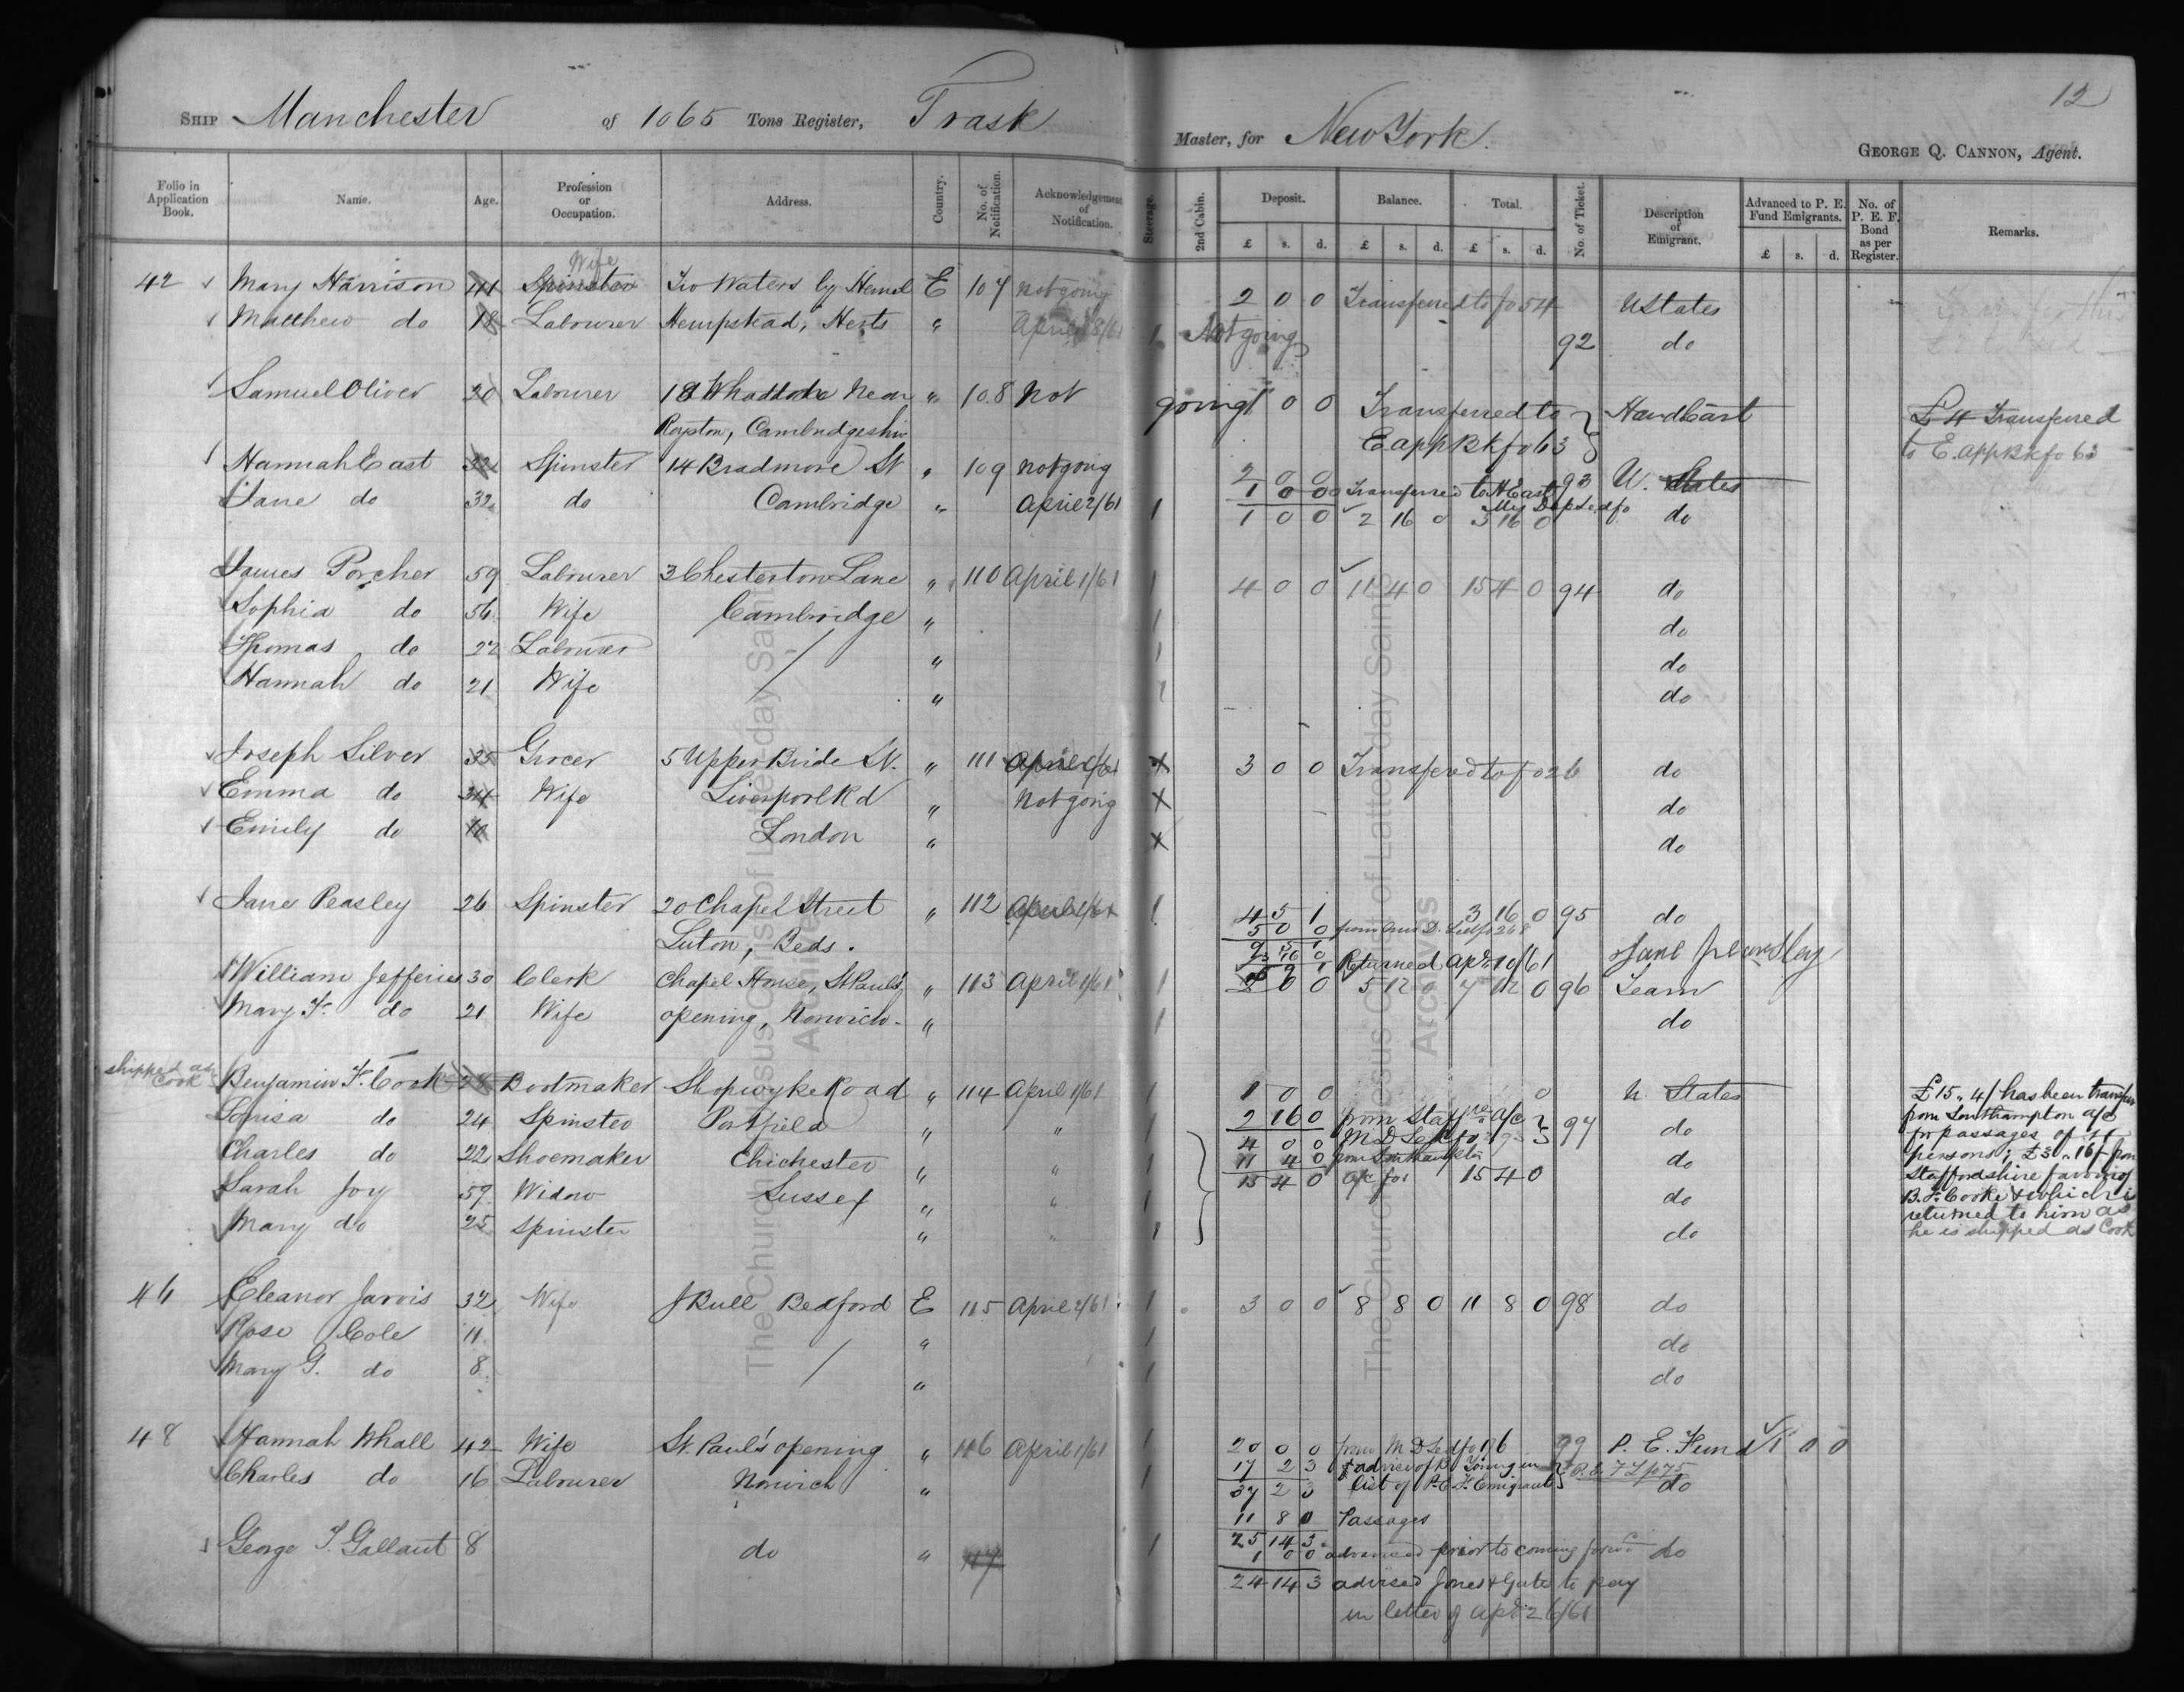 12
SHIP Manchester of 1065 Tons Register, Trask Master, for New York.
GEORGE Q. CANNON, Agent.
Folio in Application Book. Name. Age. Profession or Occupation. Address. Country. No. of Notification. Acknowledgement of Notification. Steerage. 2nd Cabin. Deposit. Balance. Total. No. of Ticket. Description of Emigrant. Advanced to P. E. Fund Emigrants. No. of P. E. F. Bond as per Register. Remarks.
£ s. d. £ s. d. £ s. d. £ s. d.
Wife
42 Mary Harrison 41 Spinster Two Waters by Hemel E 107 not going 2 0 0 Transferred to fo 54 U States
Matthew do 18 Labourer Hempstead, Herts " April 8/61 1 Not going 92 do
Samuel Oliver 20 Labourer 18 Whaddon Near " 108 Not going 1 0 0 Transferred to Hand Cart £4 Transferred
Royston, Cambridgeshire E app Bk fo 63 to E. app Bk fo 63
Hannah East 32 Spinster 14 Bradmore St " 109 not going 2 0 0 93 U. States
1 0 0 Transferred to H East
Jane do 32 do Cambridge " April 2/61 1 1 0 0 2 16 0 3 16 0 do
James Porcher 59 Labourer 3 Chesterton Lane " 110 April 1/61 1 4 0 0 11 4 0 15 4 0 94 do
Sophia do 56 Wife Cambridge " 1 do
Thomas do 22 Labourer / " 1 do
Hannah do 21 Wife / " 1 do
Joseph Silver 35 Grocer 5 Upper Bride St. " 111 April 1/61 X 3 0 0 Transfered to fo 26 do
Emma do 34 Wife Liverpool Rd " Not going X do
Emily do 10 London " X do
Jane Peasley 26 Spinster 20 Chapel Street " 112 April 1/61 1 4 5 1 3 16 0 95 do
Luton, Beds. 5 0 0 from
9 5 1
Returned Apl 10/61 Jane
William Jefferies 30 Clerk Chapel House, St Paul's " 113 April 1/61 1 2 0 0 5 12 0 7 12 0 96 Team
Mary F. do 21 Wife opening, Norwich. " 1 do
shipped as Cook Benjamin F. Cook 28 Bootmaker Shopwyke Road " 114 April 1/61 1 1 0 0 0 U. States £15 " 4/ has been transfer
Louisa do 24 Spinster Portfield " " 1 2 16 0 from Staffre a/c 97 do from Southampton a/c
4 0 0 M D Led fo for passages of
Charles do 22 Shoemaker Chichester " " 1 11 4 0 from Southampton do persons; £3 " 16/ from
Sarah Joy 59 Widow Sussex " " 1 15 4 0 a/c for 15 4 0 do Staffordshire
B. F. Cooke & which is
Mary do 25 Spinster " " 1 do returned to him as
he is shipped as Cook
46 Eleanor Jarvis 32 Wife J Bull Bedford E 115 April 2/61 1 3 0 0 8 8 0 11 8 0 98 do
Rose Cole 11 " 1 do
Mary G. do 8 / " 1 do
48 Hannah Whall 42 Wife St. Paul's opening " 116 April 1/61 1 20 0 0 from M D Led fo 186 99 P. E. Fund 1 0 0
Charles do 16 Labourer Norwich " 1 17 2 3 & advice of B Young in
37 2 3 list of P. E. F. Emigrants do
11 8 0 Passages
25 14 3
George T. Gallant 8 do " 117 1 1 0 0 advanced prior to coming do
24 14 3 advised Jones & Gate to pay
in letter of Apl 26/61
The Church of Jesus Christ of Latter-day Saints
Archives
The Church of Jesus Christ of Latter-day Saints
Archives